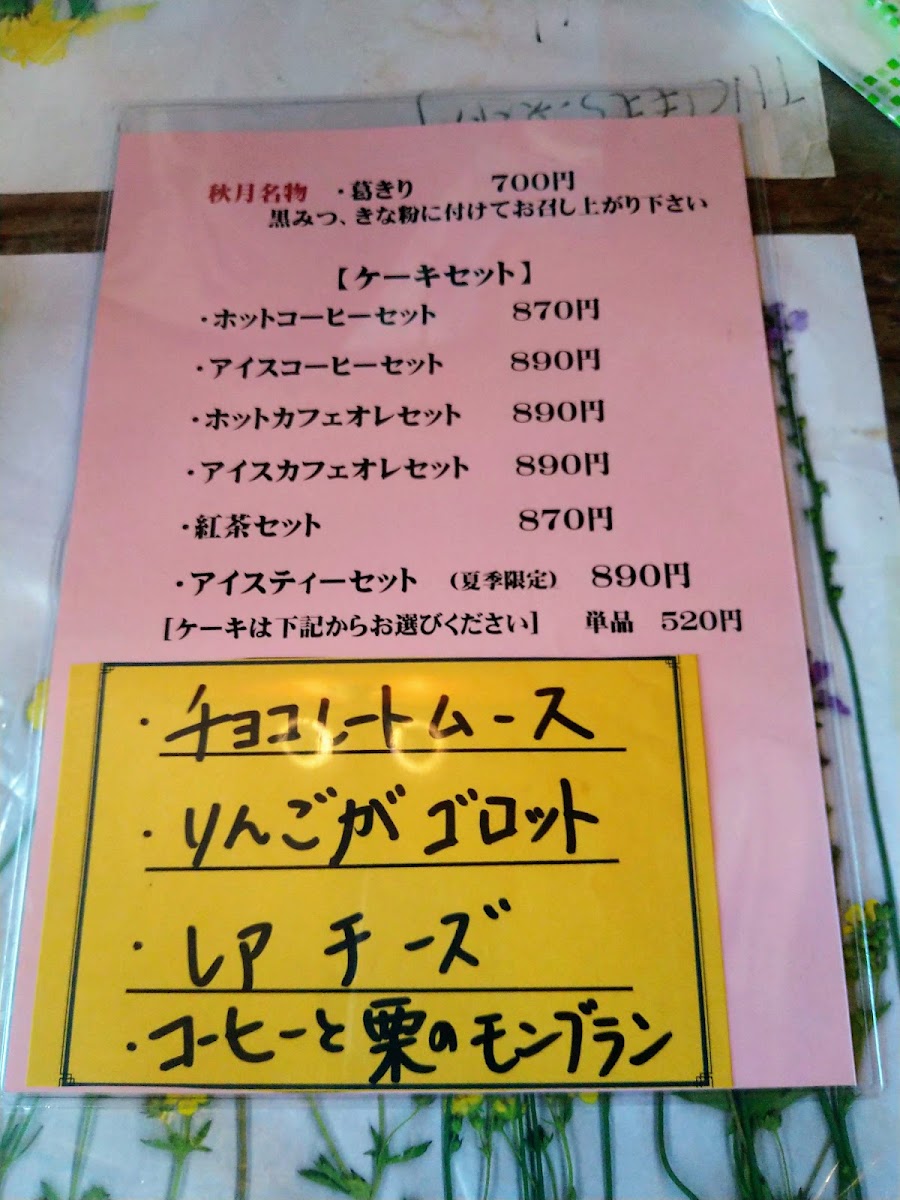 秋月名物 ・葛きり 700円
黒みつ、きな粉に付けてお召し上がり下さい
【ケーキセット】
・ホットコーヒーセット 870円
・アイスコーヒーセット 890円
・ホットカフェオレセット 890円
・アイスカフェオレセット 890円
・紅茶セット 870円
・アイスティーセット (夏季限定) 890円
[ケーキは下記からお選びください] 単品 520円
・チョコレートムース
・りんごがゴロット
・レアチーズ
・コーヒーと栗のモンブラン